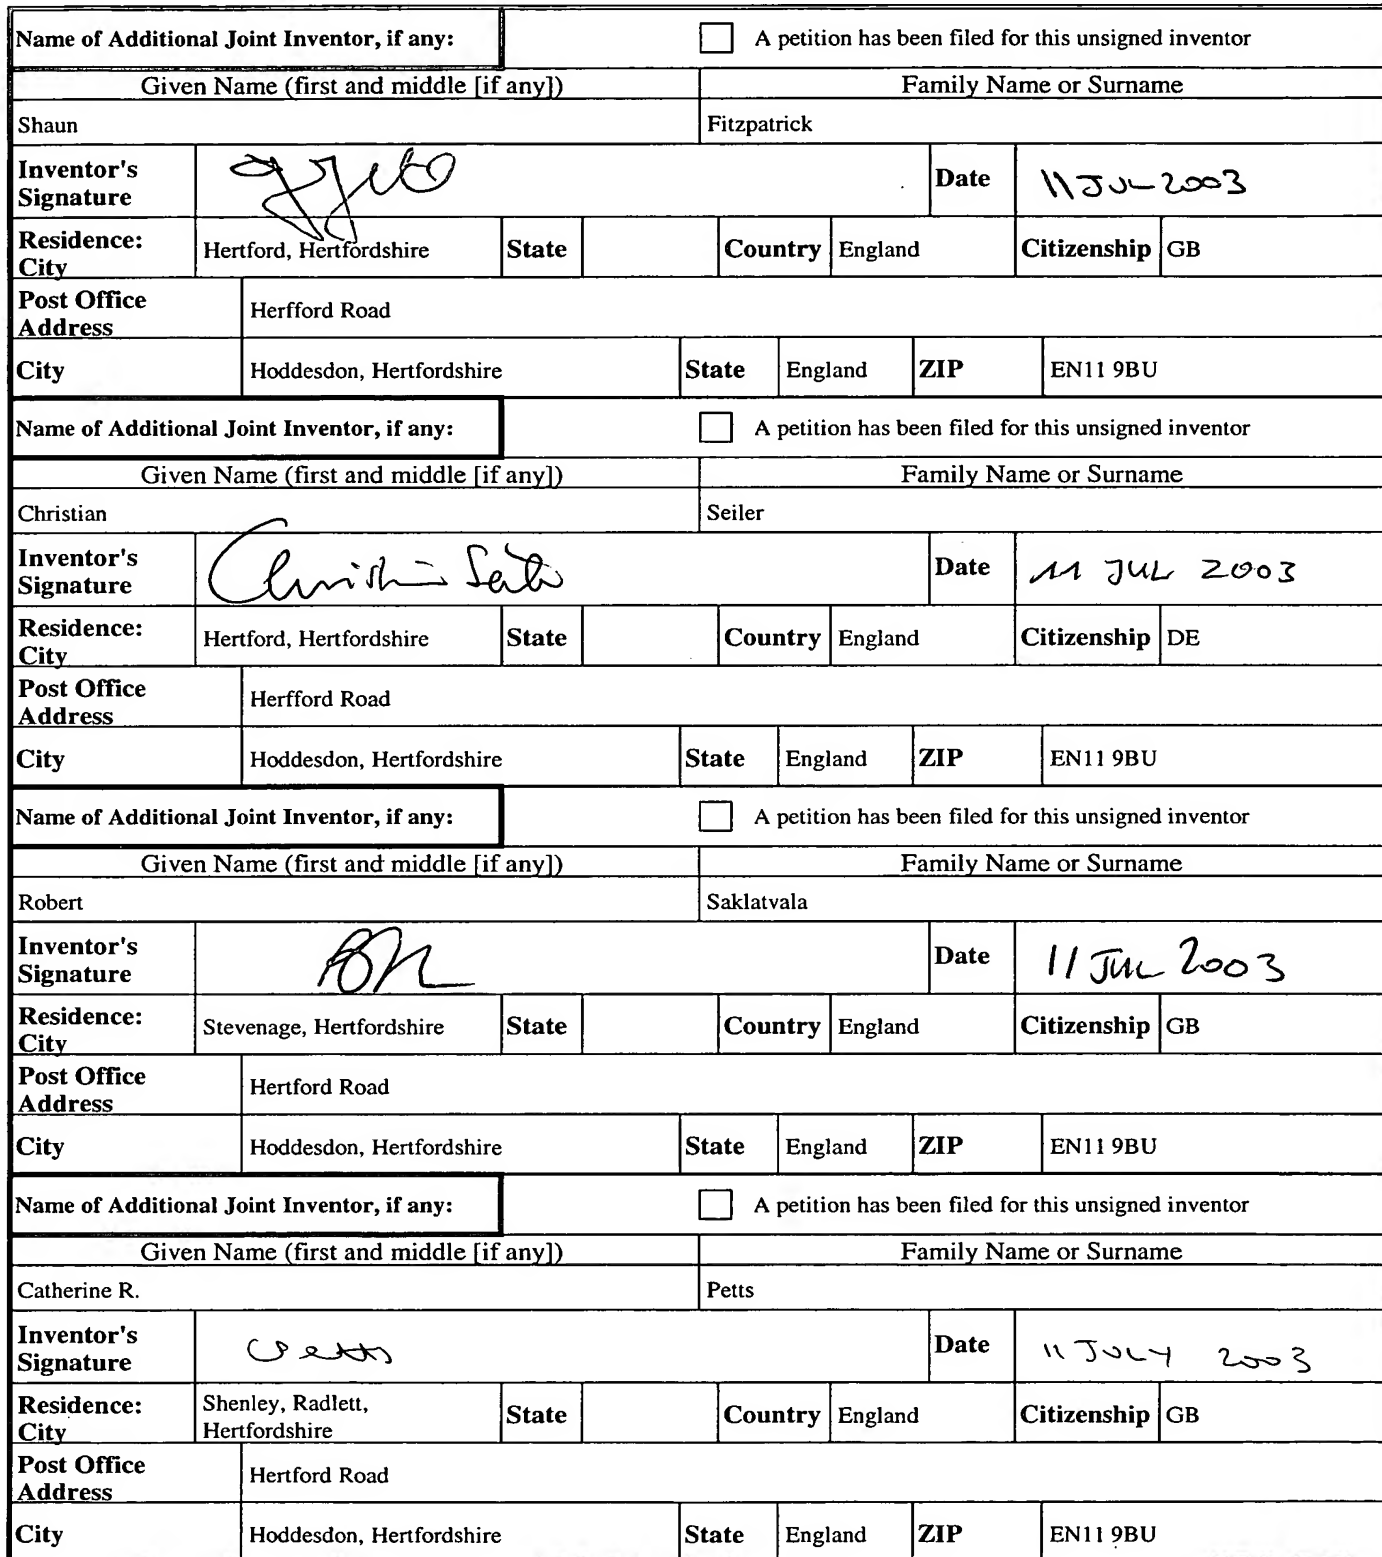 Name of Additional Joint Inventor, if any: A petition has been filed for this unsigned inventor
Given Name (first and middle [if any]) Family Name or Surname
Shaun Fitzpatrick
Inventor's Signature Date 11 JUL 2003
Residence: City Hertford, Hertfordshire State Country England Citizenship GB
Post Office Address Herfford Road
City Hoddesdon, Hertfordshire State England ZIP EN11 9BU
Name of Additional Joint Inventor, if any: A petition has been filed for this unsigned inventor
Given Name (first and middle [if any]) Family Name or Surname
Christian Seiler
Inventor's Signature Christian Seiler Date 11 JUL 2003
Residence: City Hertford, Hertfordshire State Country England Citizenship DE
Post Office Address Herfford Road
City Hoddesdon, Hertfordshire State England ZIP EN11 9BU
Name of Additional Joint Inventor, if any: A petition has been filed for this unsigned inventor
Given Name (first and middle [if any]) Family Name or Surname
Robert Saklatvala
Inventor's Signature Date 11 JUL 2003
Residence: City Stevenage, Hertfordshire State Country England Citizenship GB
Post Office Address Hertford Road
City Hoddesdon, Hertfordshire State England ZIP EN11 9BU
Name of Additional Joint Inventor, if any: A petition has been filed for this unsigned inventor
Given Name (first and middle [if any]) Family Name or Surname
Catherine R. Petts
Inventor's Signature CPetts Date 11 JULY 2003
Residence: City Shenley, Radlett, Hertfordshire State Country England Citizenship GB
Post Office Address Hertford Road
City Hoddesdon, Hertfordshire State England ZIP EN11 9BU